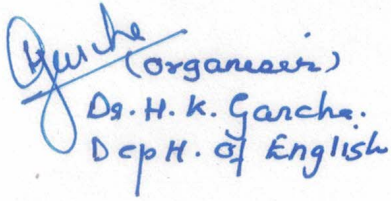 Garcha
(Organiser)
Dr. H. K. Garcha.
Deptt. of English